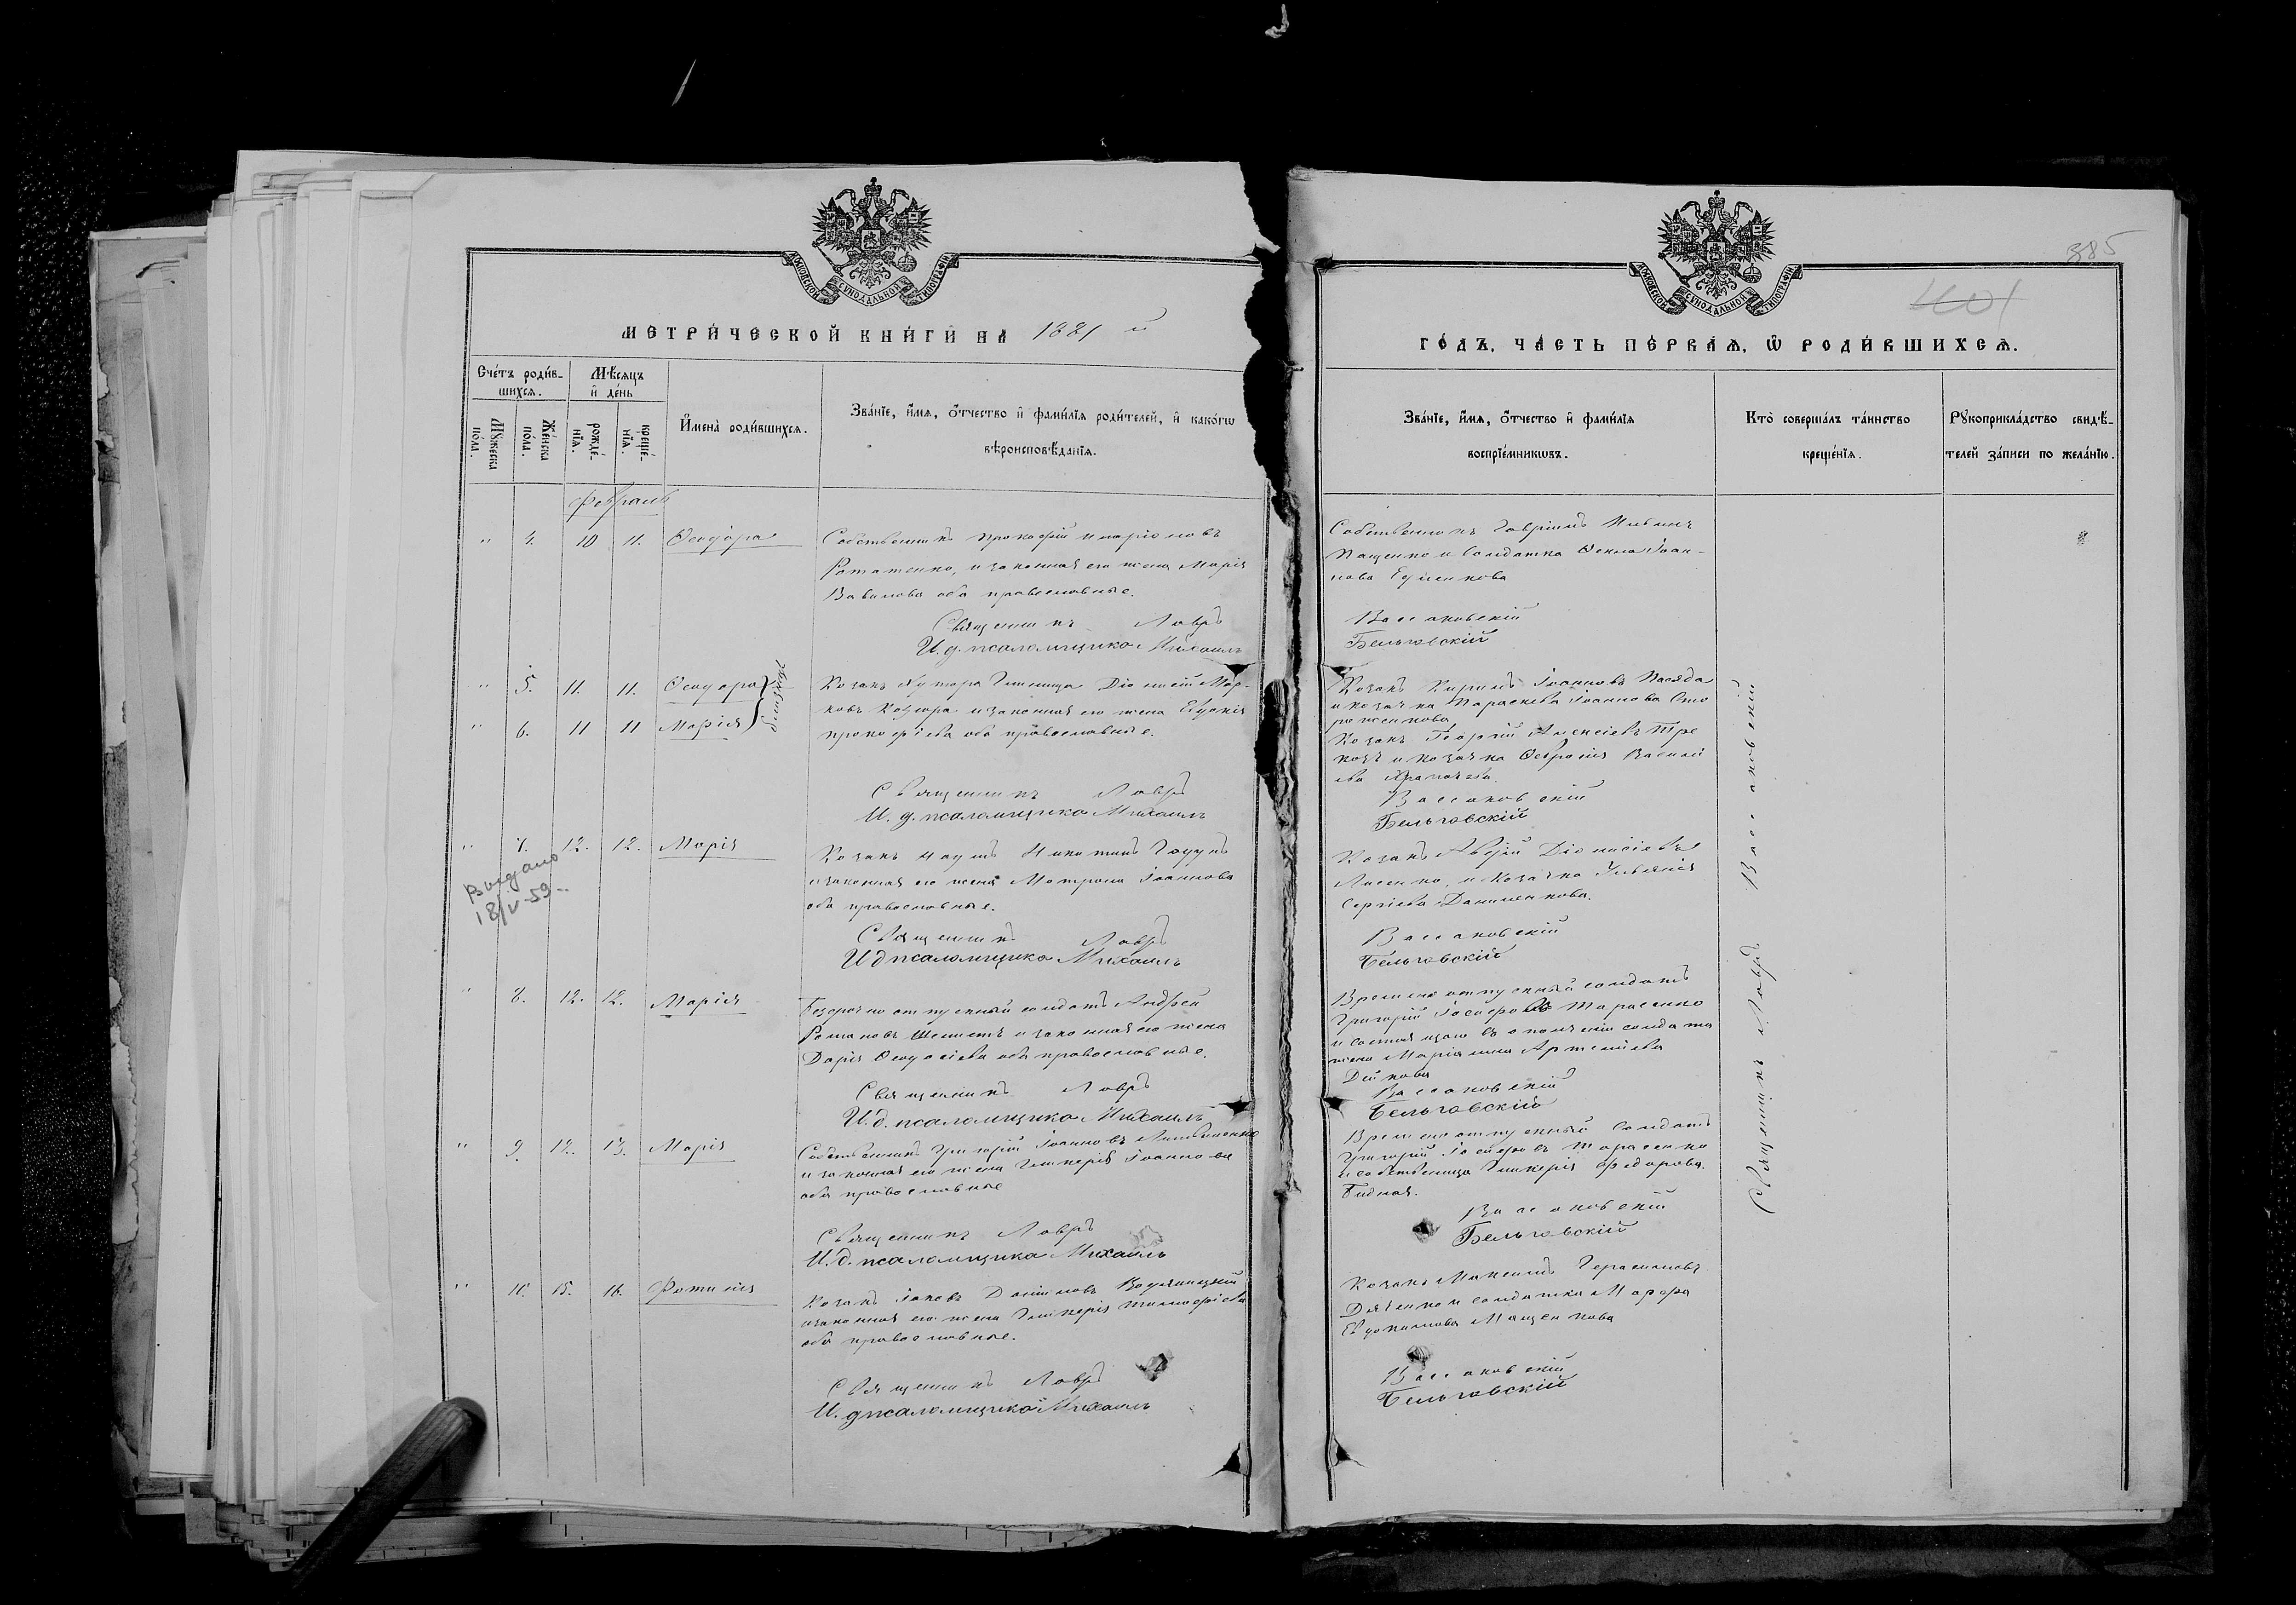 385
401
МОСКОВСКОЙ СУНОДАЛЬНОЙ ТИПОГРАФІИ
МЕТРИ́ЧЕСКОЙ КНИ́ГИ НА 1881 й
Сче́тъ роди́в-
шихся.
Мѣ́сяцъ
и де́нь
Му́жеска
по́ла.
Же́нска
по́ла.
рожде́-
нїя.
креще́-
нїя.
Имена̀ роди́вшихся.
Зва́нїе, и́мя, о́тчество и фами́лїя роди́телей, и како́гѡ
вѣроисповѣ́данїя.
Февраль
" 4. 10 11. Ѳеодора
Собственникъ Прокофій Иларіоновъ
Поташенко, и законная его жена Марія
Вавилова оба православные.
Священникъ Лавръ
И.д. псаломщика Михаилъ
" 5. 11. 11. Ѳеодора
" 6. 11 11 Марія
близнецы
Козакъ Хутора Глиница Діонисій Мар-
ковъ Козюра и законная его жена Евдокія
Прокофіева оба православные.
Священникъ Лавръ
И.д. псаломщика Михаилъ
" 7. 12. 12. Марія
Выдано
18/V-59-
Козакъ Наумъ Никитинъ
и законная его жена Матрона Іоаннова
оба православные.
Священникъ Лавръ
И д псаломщика Михаилъ
" 8. 12. 12. Марія
Безсрочно отпускный солдатъ Андрей
Романовъ и законная его жена
Дарія Ѳеодосіева оба православные.
Священникъ Лавръ
И.д. псаломщика Михаилъ
" 9. 12. 13. Марія
Собственникъ Григорій Іоанновъ
и законная его жена Гликерія Іоаннова
оба православные
Священникъ Лавръ
И.д. псаломщика Михаилъ
" 10. 15. 16. Фотинія
Козакъ Іаковъ Даніиловъ
и законная его жена Гликерія Тимофіева
оба православные.
Священникъ Лавръ
И.д псаломщика Михаилъ
МОСКОВСКОЙ СУНОДАЛЬНОЙ ТИПОГРАФІИ
ГО́ДЪ, ЧА́СТЬ ПЕ́РВАЯ, Ѡ РОДИ́ВШИХСЯ.
Зва́нїе, и́мя, о́тчество и фами́лїя
воспрїе́мникѡвъ.
Кто̀ соверша́лъ та́инство
креще́нїя.
Рꙋкоприкла́дство свидѣ́-
телей за́писи по жела́нїю.
Собственникъ Гавріилъ
Пащенко и Солдатка Ѳекла Іоан-
нова Ефименкова
Вассаковскій
Бельговскій
Козакъ Кирилъ Іоанновъ
и козачка Параскева Іоаннова Сто
роженкова
Козакъ Георгій Алексіевъ
и козачка Февронія Василі
ева
Вассаковскій
Бельговскій
Козакъ Авдій Діонисіевъ
Лысенко, и Козачка Ульянія
Сергіева Даниленкова.
Вассаковскій
Бельговскій
Временно отпускный солдатъ
Григорій Іосифовъ Тарасенко
и солдата
жена Маріанна Артеміева
Вассаковскій
Бельговскій
Временно отпускный Солдатъ
Григорій Іосифовъ Тарасенко
и собственница Гликерія Федорова
Бидная.
Вассаковскій
Бельговскій
Козакъ Максимъ Герасимовъ
Дяченко и солдатка Марфа
Евдокимова Мащенкова
Вассаковскій
Бельговскій
Священникъ Лавръ Вассаковскій